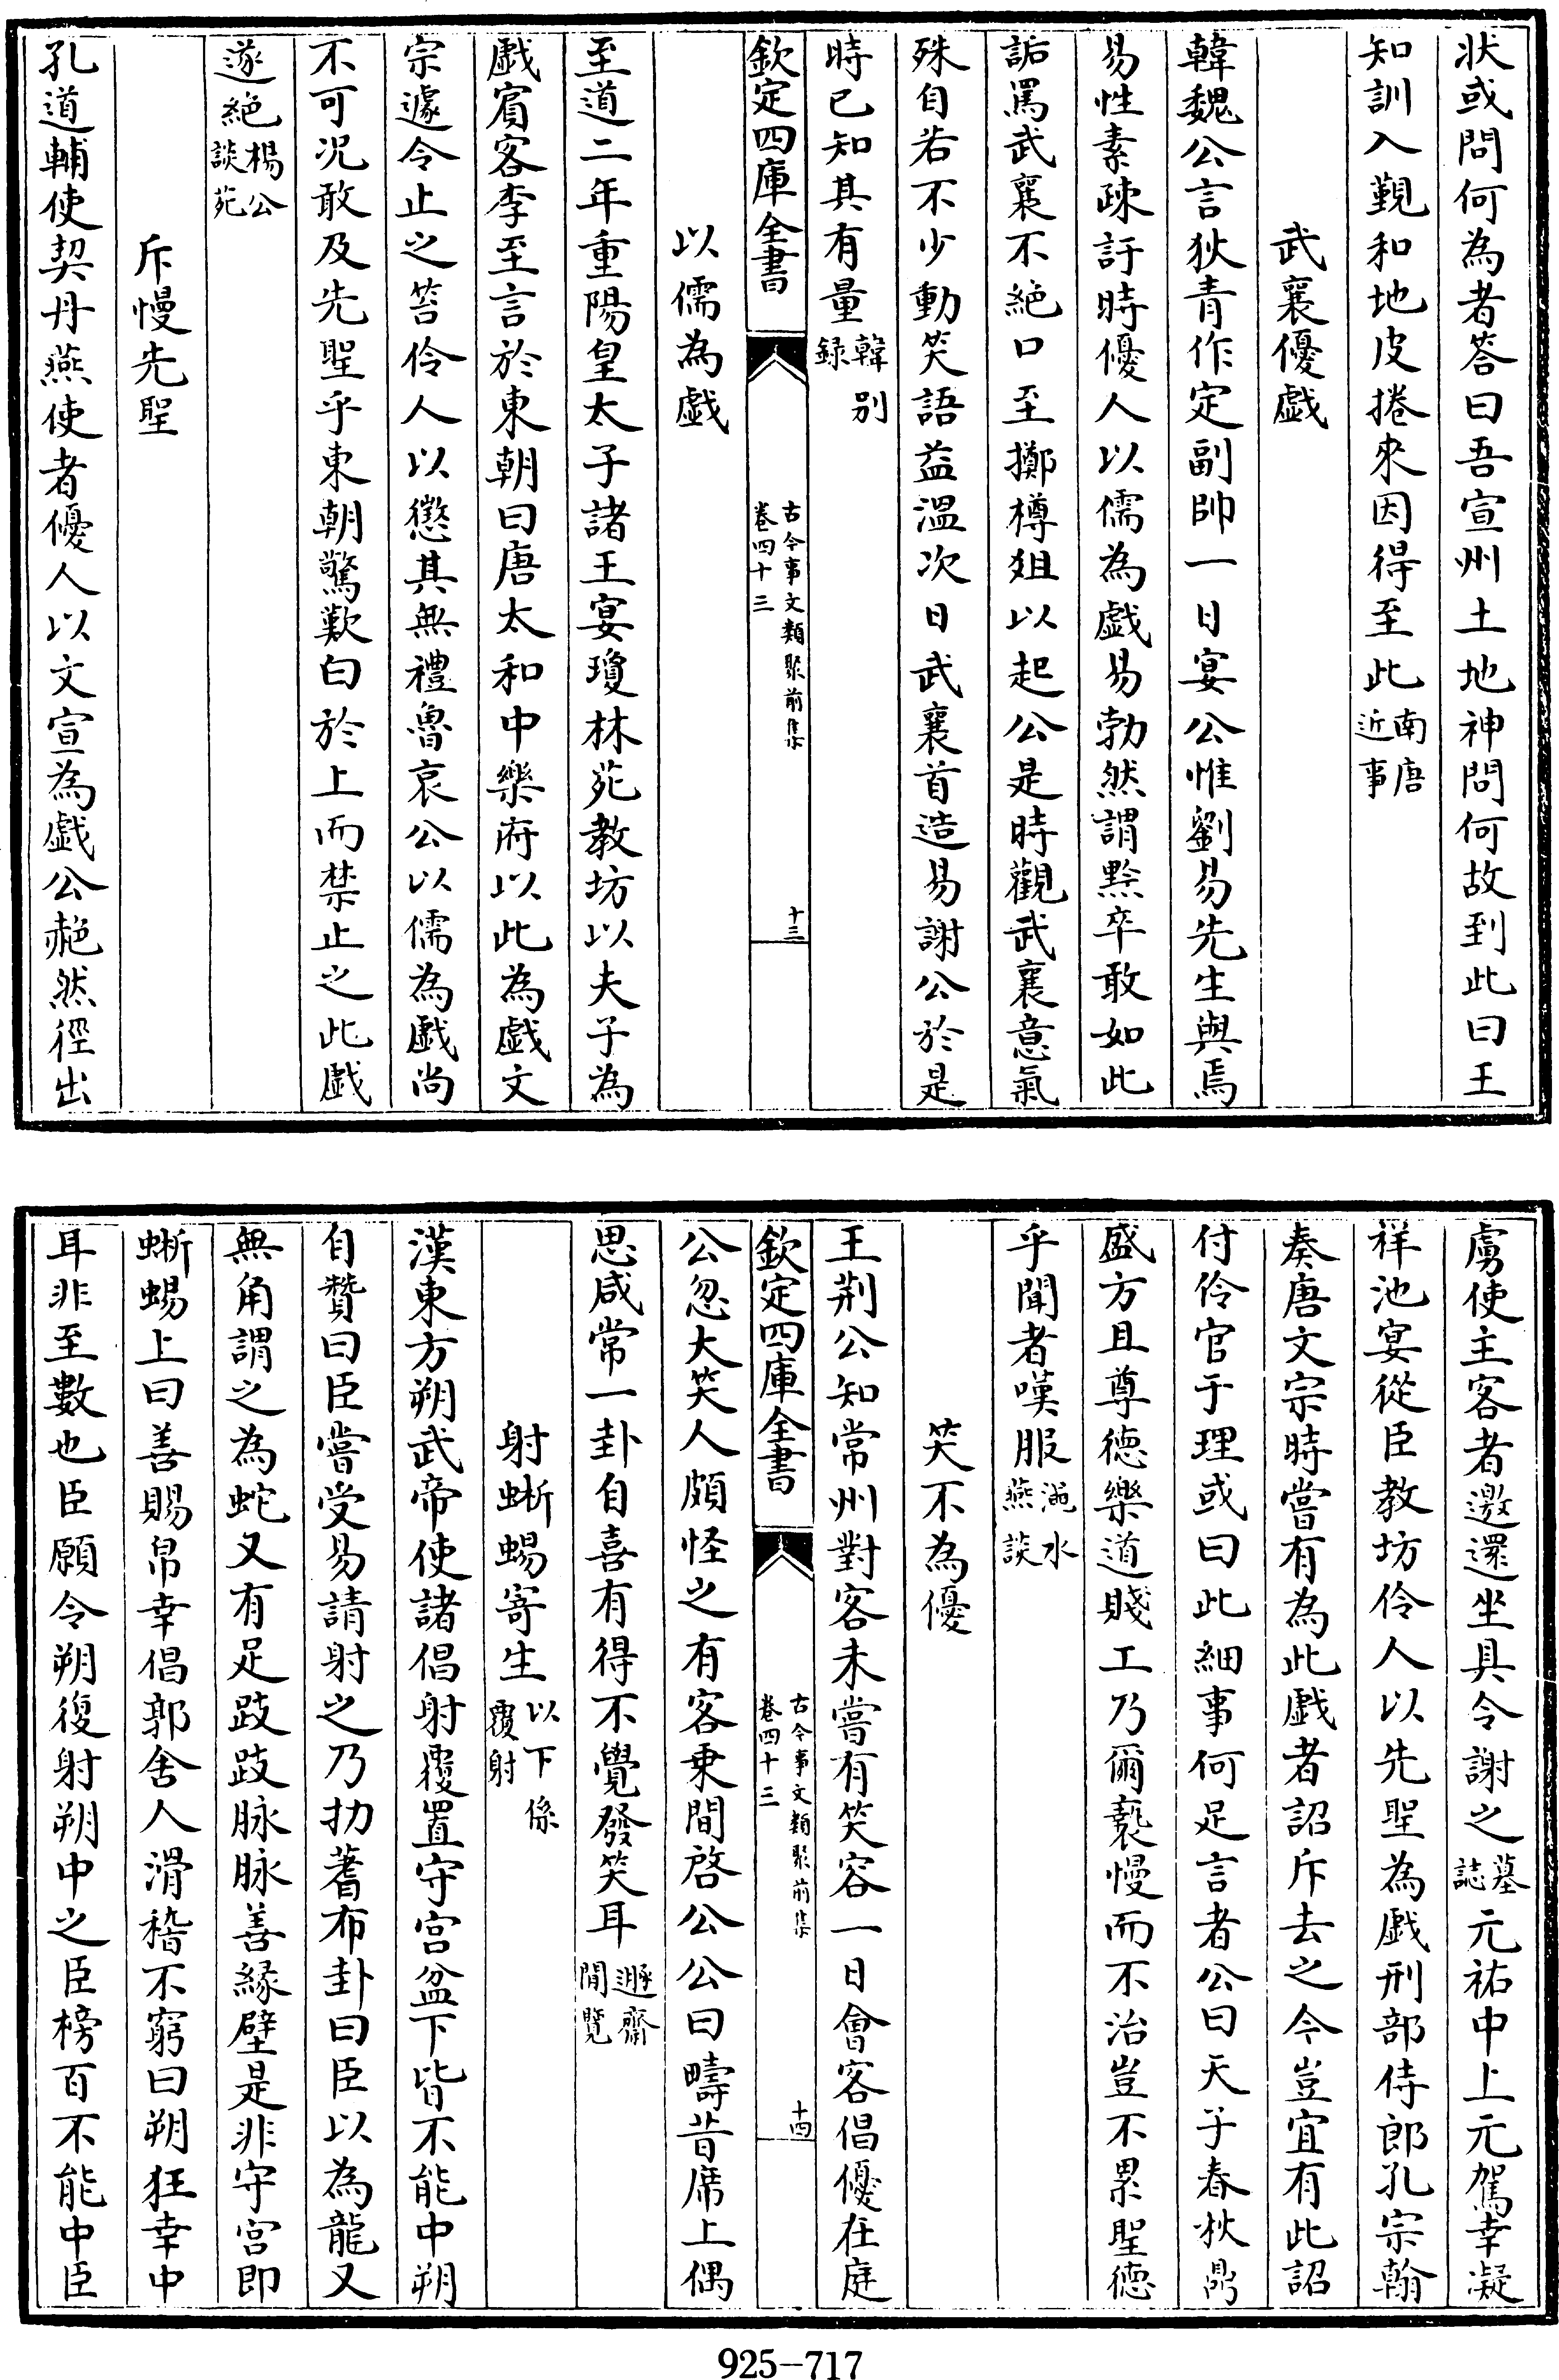 狀或問何為者答曰吾宣州土地神問何故到此曰王
知訓入覲和地皮捲來因得至此南唐近事
武襄優戯
韓魏公言狄青作定副帥一日宴公惟劉易先生與焉
易性素疎訐時優人以儒為戯易勃然謂黥卒敢如此
詬罵武襄不絶口至擲樽俎以起公是時觀武襄意氣
殊自若不少動笑語益温次日武襄首造易謝公於是
時已知其有量韓别録
欽定四庫全書 古今事文類聚前集 卷四十三 十三
以儒為戯
至道二年重陽皇太子諸王宴瓊林苑教坊以夫子為
戯賔客李至言於東朝曰唐太和中樂府以此為戯文
宗遽令止之笞伶人以懲其無禮魯哀公以儒為戯尚
不可况敢及先聖乎東朝驚歎白於上而禁止之此戯
遂絶楊公談苑
斥慢先聖
孔道輔使契丹燕使者優人以文宣為戯公艴然徑出
虜使主客者邀還坐具令謝之墓誌元祐中上元駕幸凝
祥池宴從臣教坊伶人以先聖為戯刑部侍郎孔宗翰
奏唐文宗時嘗有為此戯者詔斥去之今豈宜有此詔
付伶官于理或曰此細事何足言者公曰天子春秋鼎
盛方且尊德樂道賤工乃爾褻慢而不治豈不累聖德
乎聞者嘆服澠水燕談
笑不為優
王荆公知常州對客未嘗有笑容一日會客倡優在庭
欽定四庫全書 古今事文類聚前集 卷四十三 十四
公忽大笑人頗怪之有客乗間啓公公曰疇昔席上偶
思咸常一卦自喜有得不覺發笑耳遯齋閒覽
射蜥蜴寄生以下係覆射
漢東方朔武帝使諸倡射覆置守宫盆下皆不能中朔
自贊曰臣嘗受易請射之乃扐蓍布卦曰臣以為龍又
無角謂之為蛇又有足跂跂脉脉善緣壁是非守宫即
蜥蜴上曰善賜帛幸倡郭舍人滑稽不窮曰朔狂幸中
耳非至數也臣願令朔復射朔中之臣榜百不能中臣
925-717